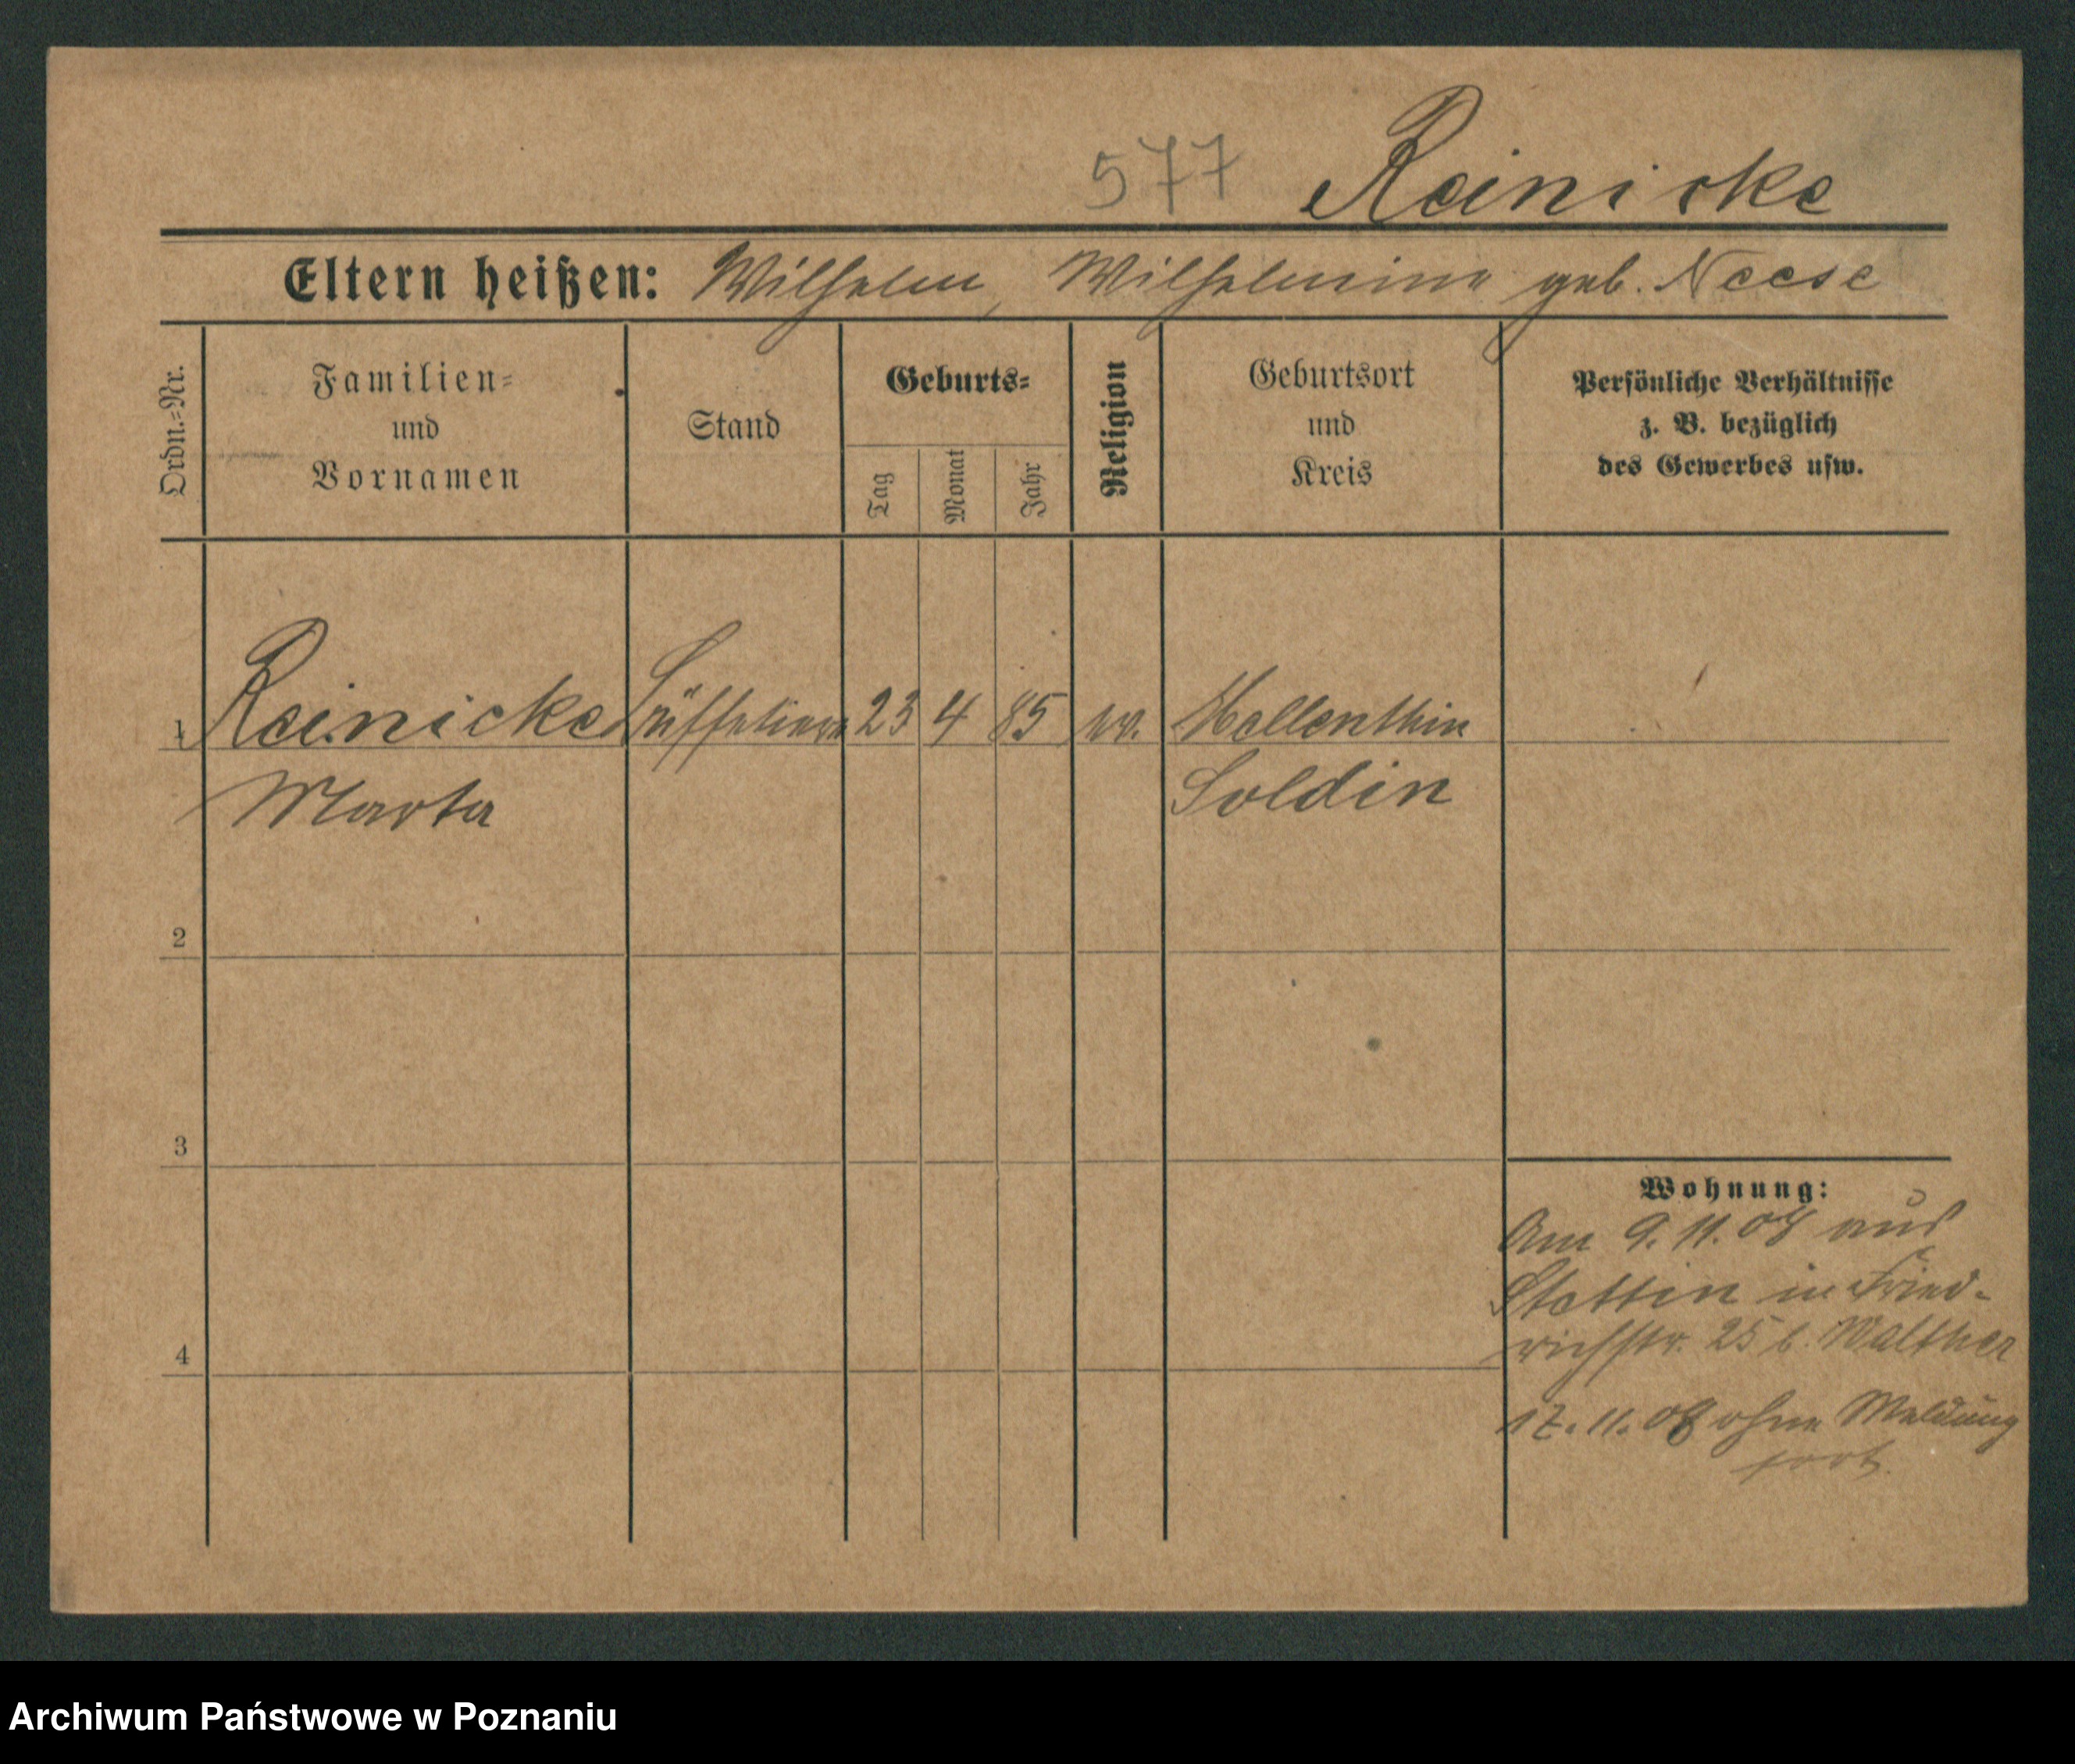 577 Reinicke
Eltern heißen: Wilhelm, Wilhelmine geb. Neese
Ordn.=Nr.
Familien=
und
Vornamen
Stand
Geburts=
Tag
Monat
Jahr
Religion
Geburtsort
und
Kreis
Persönliche Verhältnisse
z. B. bezüglich
des Gewerbes usw.
1 Reinicke 23 4 85 ev. Mellenthin
Marta Soldin
2
3
4
Wohnung:
Am 9. 11. 08 aus
Stettin in Fried-
richstr. 25 b. Walther
17. 11. 08 ohne Meldung
fort.
Archiwum Państwowe w Poznaniu